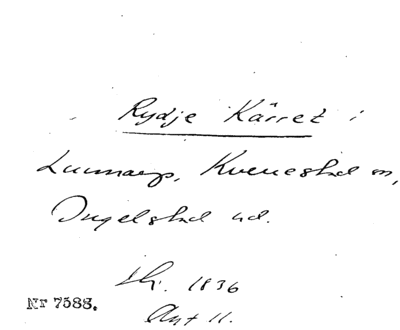 Rydje Kärret i
Lunnarp, Kverrestad sn,
Ingelstad hd.
Shr. 1836
Akt 11.
Nr 7588.